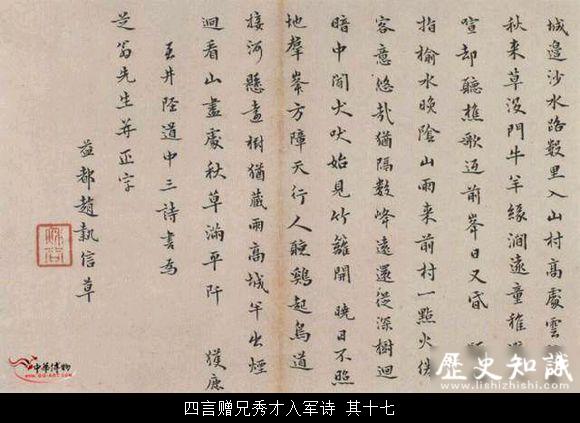 城邊沙水路數里入山村高處雲
秋来草没門牛羊緣澗遠童稚
喧却聽樵歌迈前峯日又昏
指榆水晚陰山雨来前村一點火
客意悠哉猶隔數峰遠還從深樹迴
暗中聞犬吠始見竹籬開 曉日不照
地羣峯方障天行人睡鷄起鳥道
接河懸畫樹猶蔵雨高城半出煙
迴看山盡處秋草滿平阡 獲鹿
至井陘道中三詩書為
芝翁先生并正字
益都趙執信草
中華博物
歷史知識
www.lishizhishi.com
四言赠兄秀才入军诗 其十七